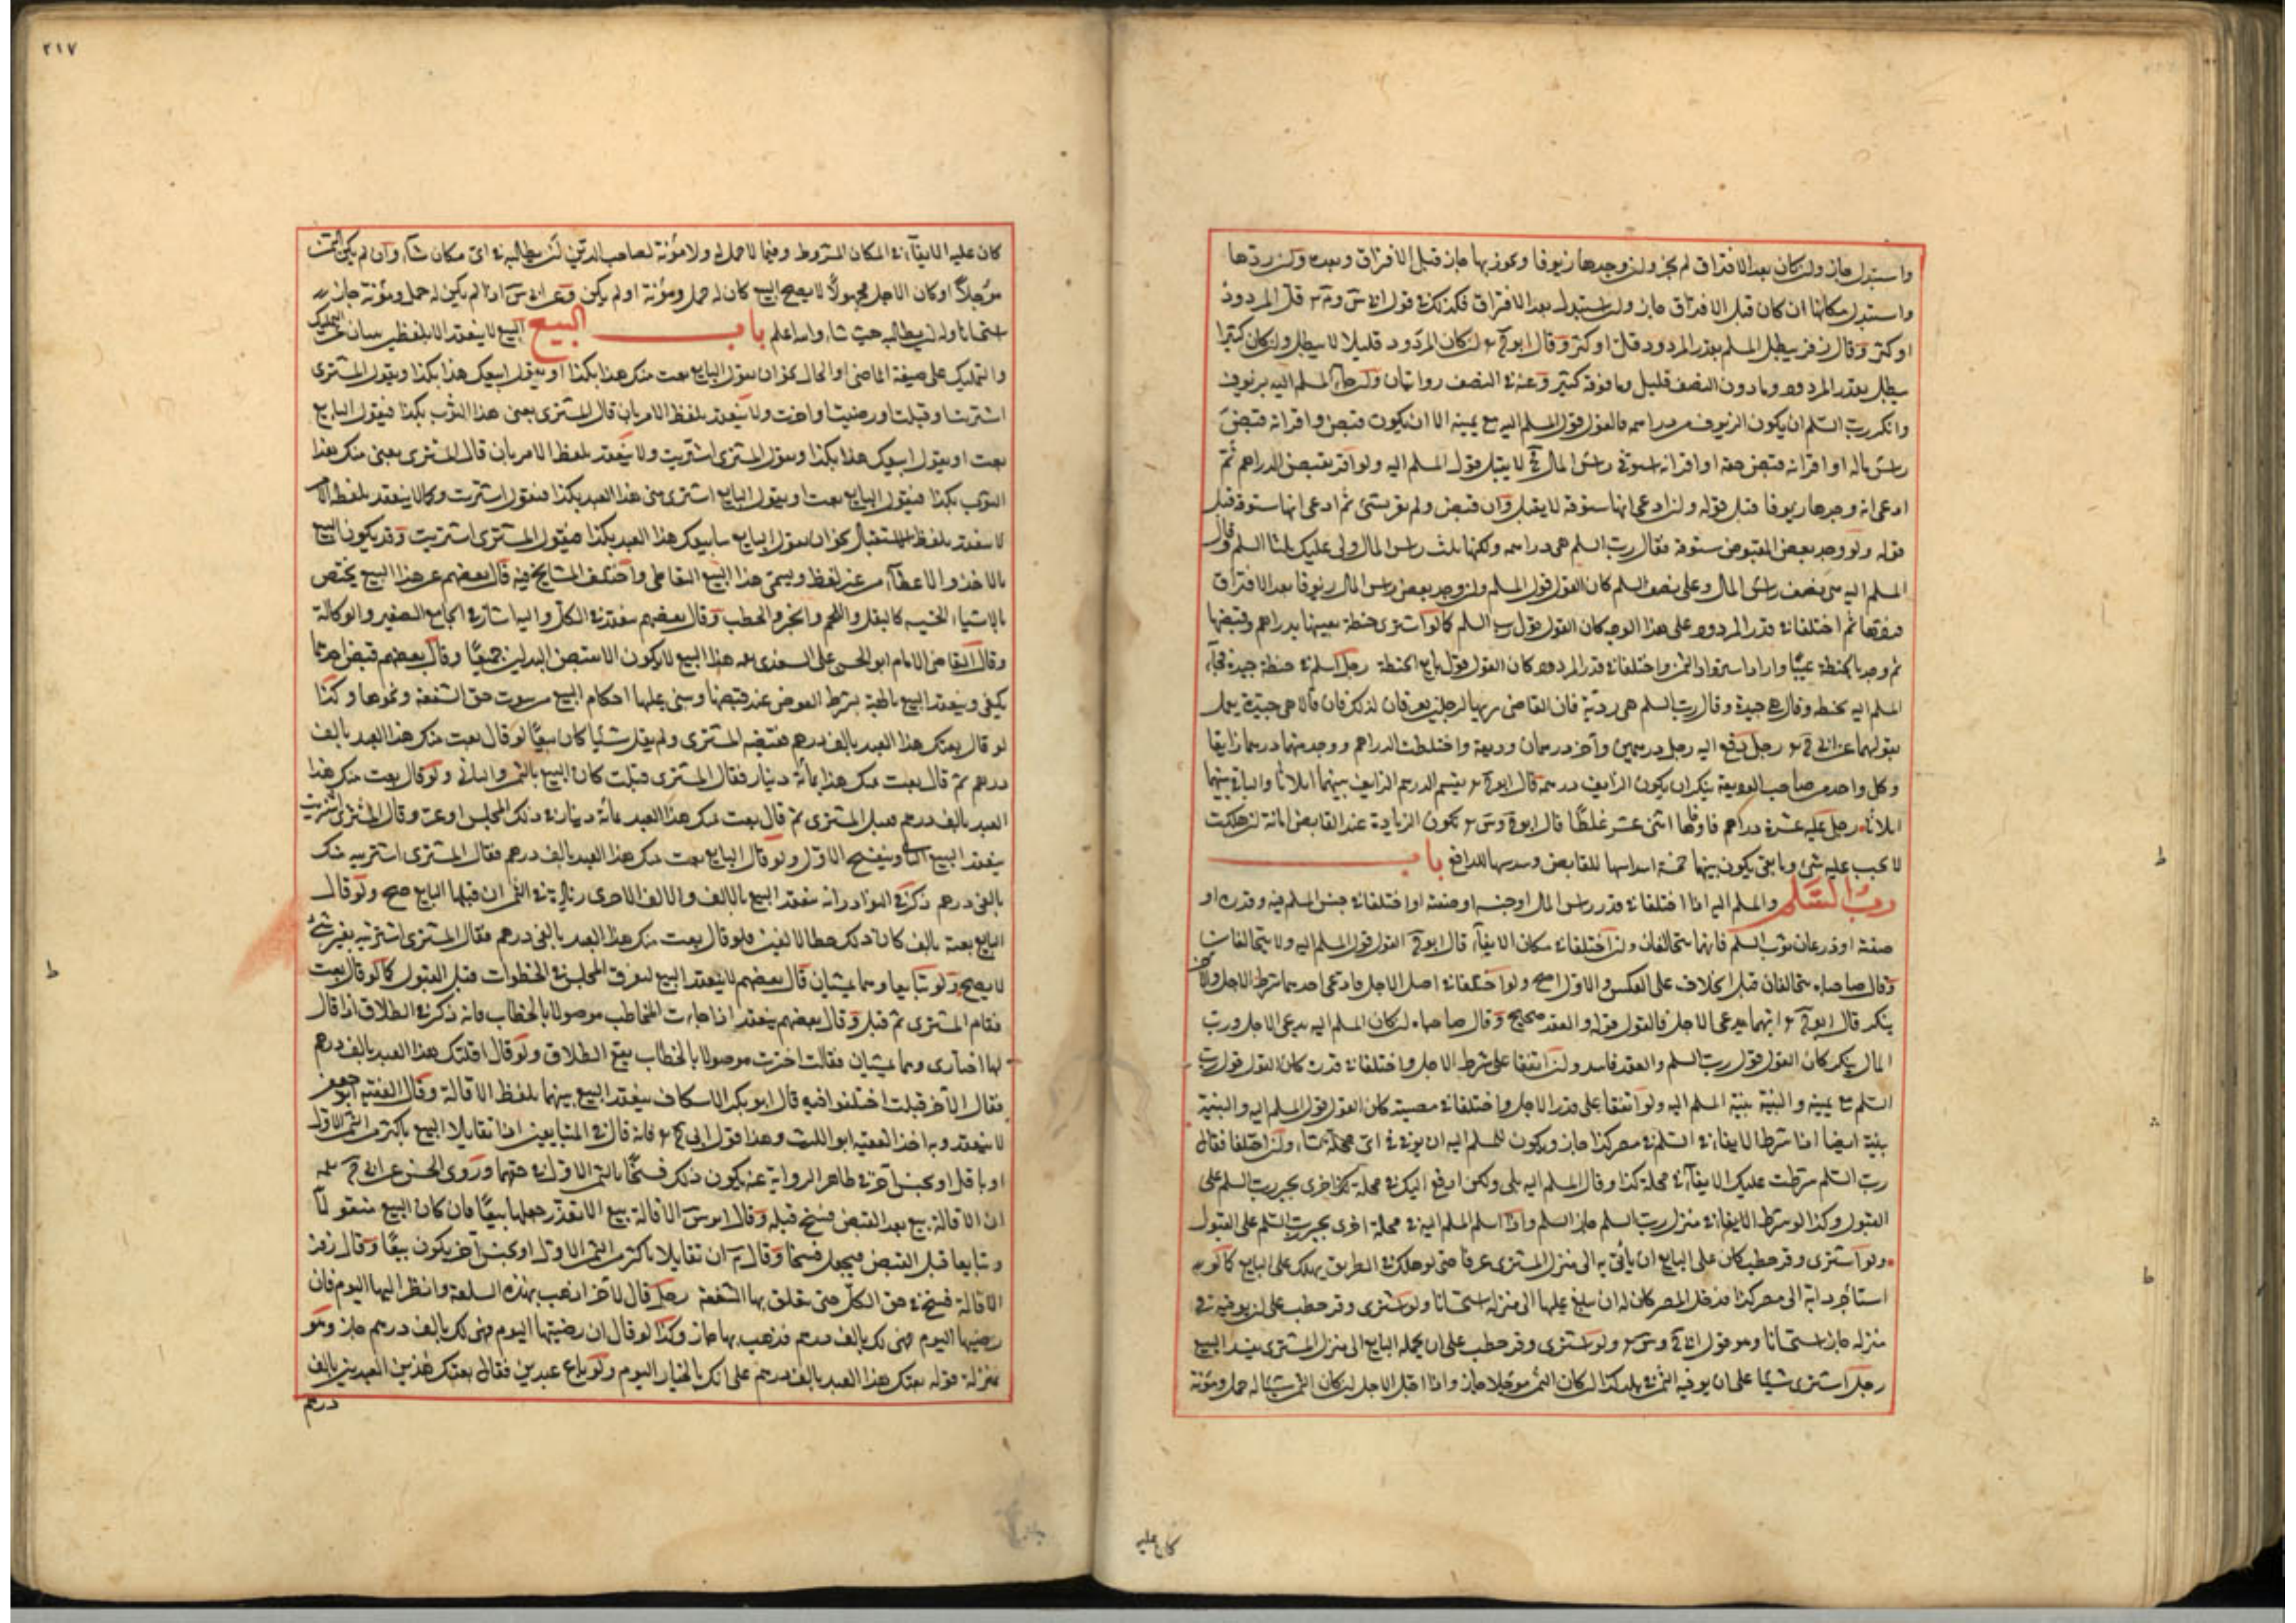 واستبدل جاز وان كان بعد الافتراق لم يجز وان وجدها زيوفا وتجوز بها جاز قبل الافتراق وبعده وان ردها
واستبدل مكانها ان كان قبل الافتراق جاز وان استبدل بعد الافتراق فكذلك في قول قل المردود
او كثر وقال زفر يبطل السلم بقدر المردود قل او كثر وقال ابو ان كان المردود قليلا لا يبطل وان كان كثيرا
يبطل بقدر المردود وما دون النصف قليل وما فوقه كثير وعنه في النصف روايتان وان جاء المسلم اليه بزيوف
وانكر رب السلم ان يكون الزيوف من دراهمه فالقول قول المسلم اليه مع يمينه الا ان يكون قبض واقر انه قبض
راس ماله او اقر انه قبض حقه او اقر انه استوفى راس المال لا يقبل قول المسلم اليه ولو اقر بقبض الدراهم ثم
ادعى انه وجدها زيوفا قبل قوله وان ادعى انها ستوقة لا يقبل وان قبض ولم يقر بشئ ثم ادعى انها ستوقة قبل
قوله ولو وجد بعض المقبوض ستوقة فقال رب السلم هى دراهمه ولكنها ثلث راس المال ولى عليك ثلثا السلم وقال
المسلم اليه هى نصف راس المال وعلى نصف السلم كان القول قول المسلم وان وجد بعض راس المال زيوفا بعد الافتراق
ثم اختلفا في قدر المردود على هذا الوجه كان القول قول رب السلم كما لو اشترى حنطة بعينها بدراهم وقبضها
ثم وجد بالحنطة عيبا واراد استرداد الثمن واختلفا في قدر المردود كان القول قول بايع الحنطة رجل اسلم في حنطة جيدة فجاء
المسلم اليه بحنطة وقال هى جيدة وقال رب السلم هى ردية فان القاضى يريها لرجلين يعرفان لذلك فان قالا هى جيدة يعمل
بقولهما رجل دفع اليه رجل درهمين وآخر درهمان وديعة واختلطت الدراهم ووجد منها درهما زايفا
وكل واحد من صاحب الوديعة ينكر ان يكون الزايف درهمه قال ابو يقسم الدرهم الزايف بينهما اثلاثا والباقى بينهما
اثلاثا رجل عليه عشرة دراهم فاوفاها اثنى عشر غلطا قال ابو تكون الزيادة عند القابض امانة ان هلكت
لا يجب عليه شئ وما بقى يكون بينهما خمسة اسداسها للقابض وسدسها للدافع باب
رب السلم والمسلم اليه اذا اختلفا في قدر راس المال او جنسه او صفته او اختلفا في جنس المسلم فيه وقدره او
صفته او ذرعان ثوب السلم فانهما يتحالفان وان اختلفا في مكان الايفاء قال ابو القول قول المسلم اليه ولا يتحالفان
وقال صاحباه يتحالفان قيل الخلاف على العكس والاول اصح ولو اختلفا في اصل الاجل فادعى احدهما شرط الاجل والآخر
ينكر قال ابو ايهما يدعى الاجل فالقول قوله والعقد صحيح وقال صاحباه ان كان المسلم اليه يدعى الاجل ورب
المال ينكر كان القول قول رب السلم والعقد فاسد وان اتفقا على شرط الاجل واختلفا في قدره كان القول قول رب
السلم مع يمينه والبينة بينة المسلم اليه ولو اتفقا على قدر الاجل واختلفا في مضيه كان القول قول المسلم اليه والبينة
بينته ايضا اذا شرطا الايفاء في السلم في مصر كذا جاز ويكون للمسلم اليه ان يوفى في اى محلة شاء ولو اختلفا فقال
رب السلم شرطت عليك الايفاء في محلة كذا وقال المسلم اليه بلى ولكن ادفع اليك في محلة اخرى يجبر رب السلم على
القبول وكذا لو شرط الايفاء في منزل رب السلم جاز السلم واذا اسلم المسلم اليه في محلة اخرى يجبر رب السلم على القبول
ولو اشترى وقر حطب كان على البايع ان يأتى به الى منزل المشترى عرفا حتى لو هلك في الطريق يهلك على البايع كما لو
استأجر دابة الى مصر كذا فدخل المصر كان له ان يبلغ عليها الى منزله استحسانا ولو اشترى وقر حطب على ان يوفيه في
منزله جاز استحسانا وهو قول ولو اشترى وقر حطب على ان يحمله البايع الى منزل المشترى يفسد البيع
رجل اشترى شيئا على ان يوفيه الثمن في بلد كذا ان كان الثمن مؤجلا جاز واذا حل الاجل ان كان الثمن شيئا له حمل ومؤنة
كان عليه
٢١٧
كان عليه الايفاء في المكان المشروط وفيما لا حمل له ولا مؤنة لصاحب الدين ان يطالبه في اى مكان شاء وان لم يكن الثمن
مؤجلا او كان الاجل مجهولا لا يصح البيع كان له حمل ومؤنة او لم يكن وعن اذا لم يكن له حمل ومؤنة جاز
استحسانا وله ان يطالبه حيث شاء والله اعلم باب البيع البيع لا ينعقد الا بلفظين ينبئان عن التمليك
والتملك على صيغة الماضى او الحال نحو ان يقول البايع بعت منك هذا بكذا او يقول ابيعك هذا بكذا ويقول المشترى
اشتريت او قبلت او رضيت او اخذت ولا ينعقد بلفظ الامر بان قال المشترى بعنى هذا الثوب بكذا فيقول البايع
بعت او يقول ابيعك هذا بكذا ويقول المشترى اشتريت ولا ينعقد بلفظ الامر بان قال المشترى بعنى منك هذا
الثوب بكذا فيقول البايع بعت او يقول البايع اشترى منى هذا العبد بكذا فيقول اشتريت وكما لا ينعقد بلفظ الامر
لا ينعقد بلفظ المستقبل نحو ان يقول البايع سابيعك هذا العبد بكذا فيقول المشترى اشتريت وقد يكون البيع
بالاخذ والاعطاء من غير لفظ ويسمى هذا البيع التعاطى واختلف المشايخ فيه قال بعضهم هذا البيع يختص
بالاشياء الخسيسة كالبقل واللحم والخبز والحطب وقال بعضهم ينعقد في الكل واليه اشار في الجامع الصغير والوكالة
وقال القاضى الامام ابو الحسن على السغدى هذا البيع لا يكون الا بقبض البدلين جميعا وقال بعضهم قبض احدهما
يكفى وينعقد البيع بالهبة بشرط العوض عند قبضها ويبنى عليها احكام البيع من ثبوت حق الشفعة ونحوها وكذا
لو قال بعتك هذا العبد بالف درهم فقبضه المشترى ولم يقل شيئا كان بيعا لو قال بعت منك هذا العبد بالف
درهم ثم قال بعت منك هذا بمائة دينار فقال المشترى قبلت كان البيع بالثمن الثانى ولو قال بعت منك هذا
العبد بالف درهم فقبل المشترى ثم قال بعت منك هذا العبد بمائة دينار في ذلك المجلس او غيره وقال المشترى اشتريت
ينعقد البيع الثانى وينفسخ الاول ولو قال البايع بعت منك هذا العبد بالف درهم فقال المشترى اشتريته منك
بالفى درهم ذكر في النوادر انه ينعقد البيع بالالف والالف الاخرى زيادة في الثمن ان قبلها البايع صح ولو قال
البايع بعته بالف كان ذلك حطا لالفين فلو قال بعت منك هذا العبد بالفى درهم فقال المشترى اشتريته بغير شئ
لا يصح ولو تبايعا وهما يمشيان قال بعضهم لا ينعقد البيع لتفرق المجلس في الخطوات قبل القبول كما لو قال بعت
فقام المشترى ثم قبل وقال بعضهم ينعقد اذا جاءت المخاطب موصولا بالخطاب فانه ذكر في الطلاق اذا قال
لها اختارى وهما يمشيان فقالت اخترت موصولا بالخطاب يقع الطلاق ولو قال اقلتك هذا العبد بالف درهم
فقال الآخر قبلت اختلفوا فيه قال ابو بكر الاسكاف ينعقد البيع بينهما بلفظ الاقالة وقال الفقيه ابو جعفر
لا ينعقد وبه اخذ الفقيه ابو الليث وهذا قول فانه قال في المتبايعين اذا تقايلا البيع باكثر من الثمن الاول
او باقل او بجنس آخر في ظاهر الرواية عنه يكون ذلك فسخا بالثمن الاول في حقهما وروى الحسن عن
ان الاقالة بيع بعد القبض فسخ قبله وقال ابو الاقالة بيع الا تعذر جعلها بيعا فان كان البيع منقولا
وتبايعا قبل القبض فيجعل فسخا وقال ان تقايلا باكثر من الثمن الاول او بجنس آخر يكون بيعا وقال زفر
الاقالة فسخ في حق الكل حتى يتعلق بها الشفعة رجل قال لآخر اذهب بهذه السلعة وانظر اليها اليوم فان
رضيتها اليوم فهى لك بالف درهم فذهب بها جاز وكذا لو قال ان رضيتها اليوم فهى لك بالف درهم جاز وهو
بمنزلة قوله بعتك هذا العبد بالف درهم على انك بالخيار اليوم ولو باع عبدين فقال بعتك هذين العبدين بالف
درهم